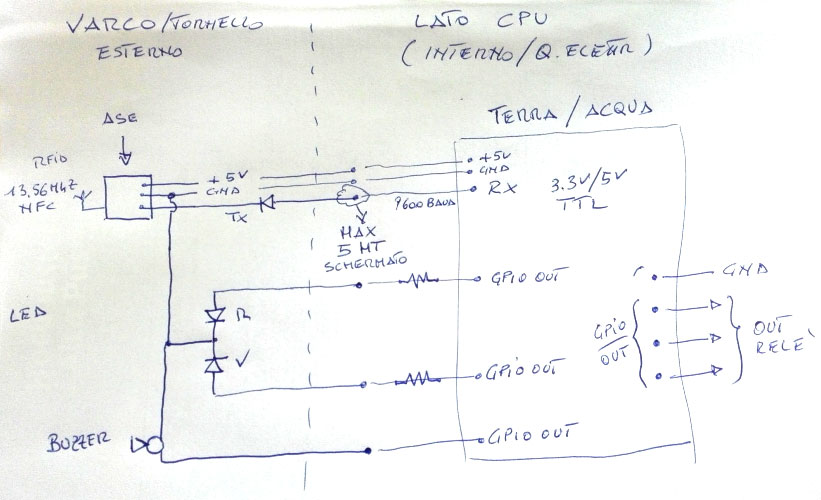 VARCO/TORNELLO
ESTERNO
LATO CPU
(INTERNO/Q.ELETTR)
TERRA/ACQUA
ASE
RFID
13,56MHZ
NFC
+5V
GND
TX
9600 BAUD
MAX
5 MT
SCHERMATO
+5V
GND
RX
3.3V/5V
TTL
LED
R
V
GPIO OUT
GPIO OUT
GPIO OUT
GND
GPIO
OUT
OUT
RELE'
BUZZER